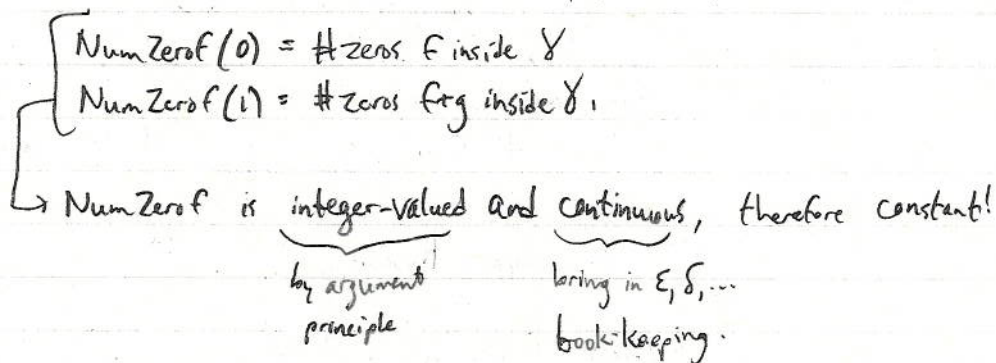 NumZerof(0) = #zeros f inside γ
NumZerof(1) = #zeros f+g inside γ.
↳ NumZerof is integer-valued and continuous, therefore constant!
by argument principle
boring in ε, δ, ...
book-keeping.